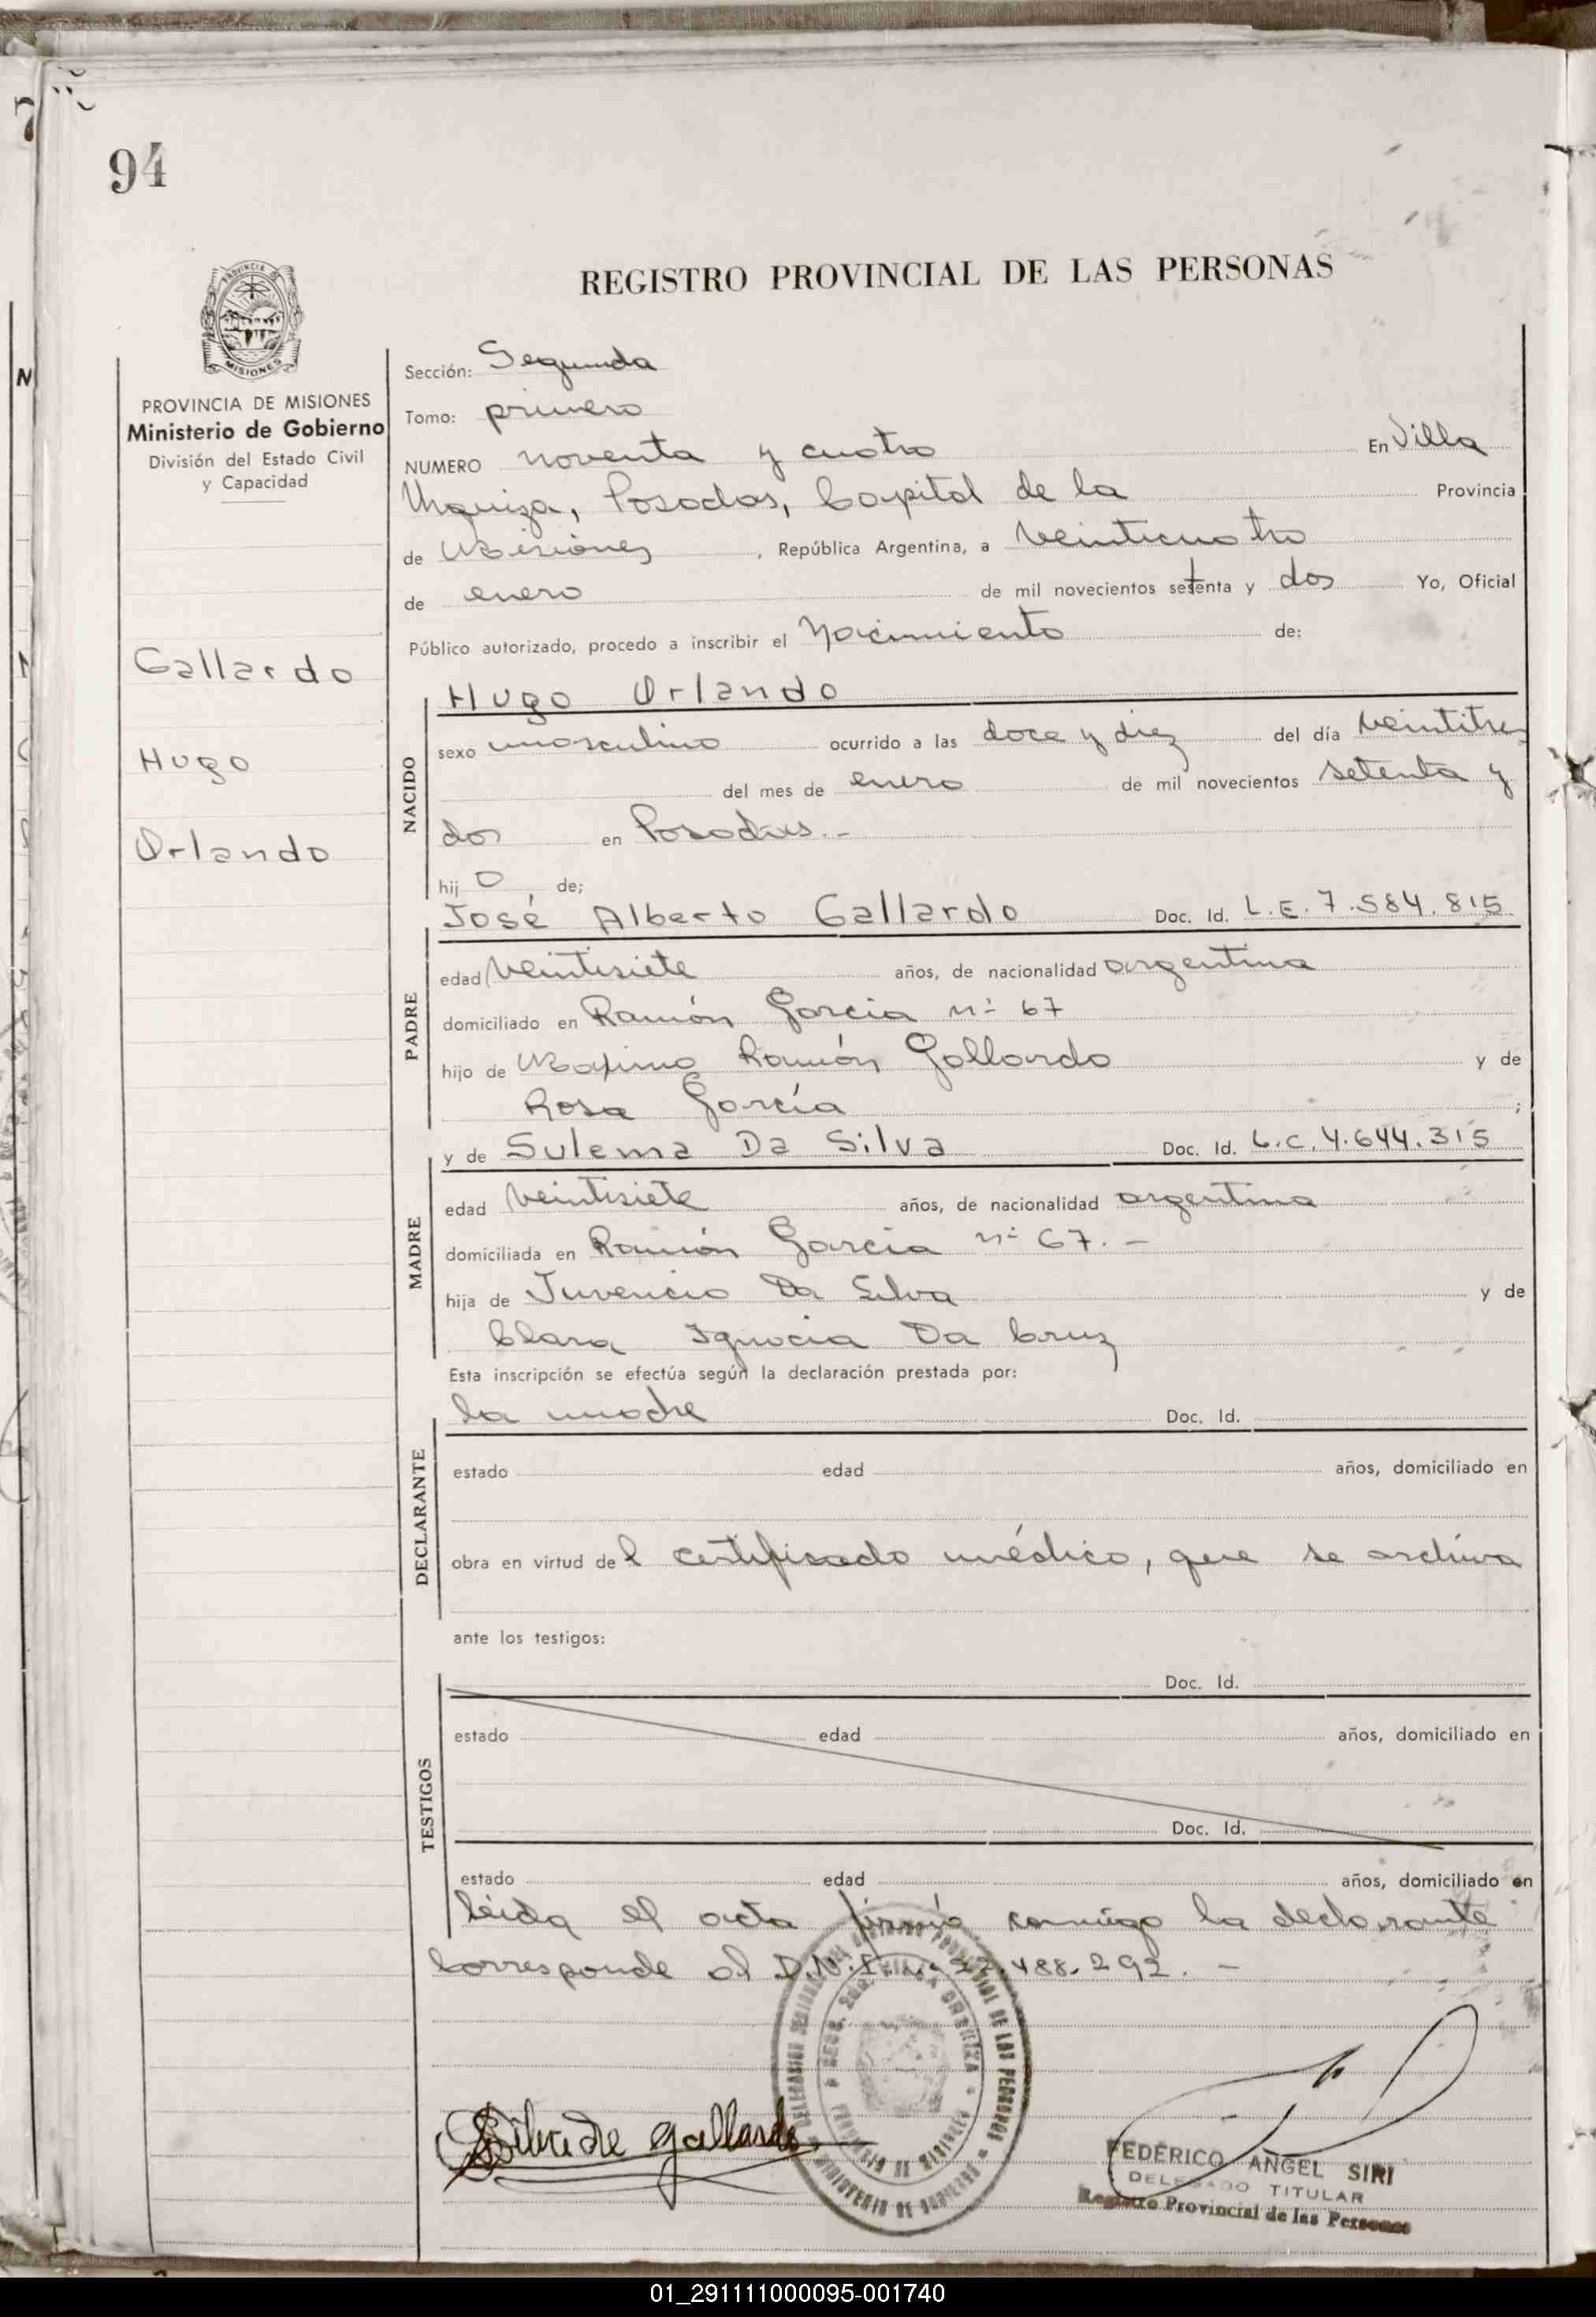 94
REGISTRO PROVINCIAL DE LAS PERSONAS
MISIONES
PROVINCIA DE MISIONES
Ministerio de Gobierno
División del Estado Civil
y Capacidad
Gallardo
Hugo
Orlando
Sección: Segunda
Tomo: primero
NUMERO noventa y cuatro En Villa
Urquiza, Posadas, Capital de la Provincia
de Misiones, República Argentina, a veinticuatro
de enero de mil novecientos setenta y dos Yo, Oficial
Público autorizado, procedo a inscribir el Nacimiento de:
NACIDO
Hugo Orlando
sexo masculino ocurrido a las doce y diez del día veintitres
del mes de enero de mil novecientos setenta y
dos en Posadas.-
hij o de;
PADRE
José Alberto Gallardo Doc. Id. L.E. 7.584.815
edad veintisiete años, de nacionalidad argentina
domiciliado en Ramón García nº 67
hijo de Maximo Ramón Gallardo y de
Rosa García ;
MADRE
y de Sulema Da Silva Doc. Id. L.C. 4.644.315
edad veintisiete años, de nacionalidad argentina
domiciliada en Ramón García nº 67.-
hija de Juvencio Da Silva y de
Clara Ignacia Da Cruz
Esta inscripción se efectúa según la declaración prestada por:
DECLARANTE
la madre Doc. Id.
estado edad años, domiciliado en
obra en virtud del certificado médico, que se archiva
ante los testigos:
TESTIGOS
Doc. Id.
estado edad años, domiciliado en
Doc. Id.
estado edad años, domiciliado en
leida el acta firmó conmigo la declarante
Corresponde al D.N.I. nº 22.488.292.-
Silva de Gallardo
FEDERICO ANGEL SIRI
DELEGADO TITULAR
Registro Provincial de las Personas
01_291111000095-001740